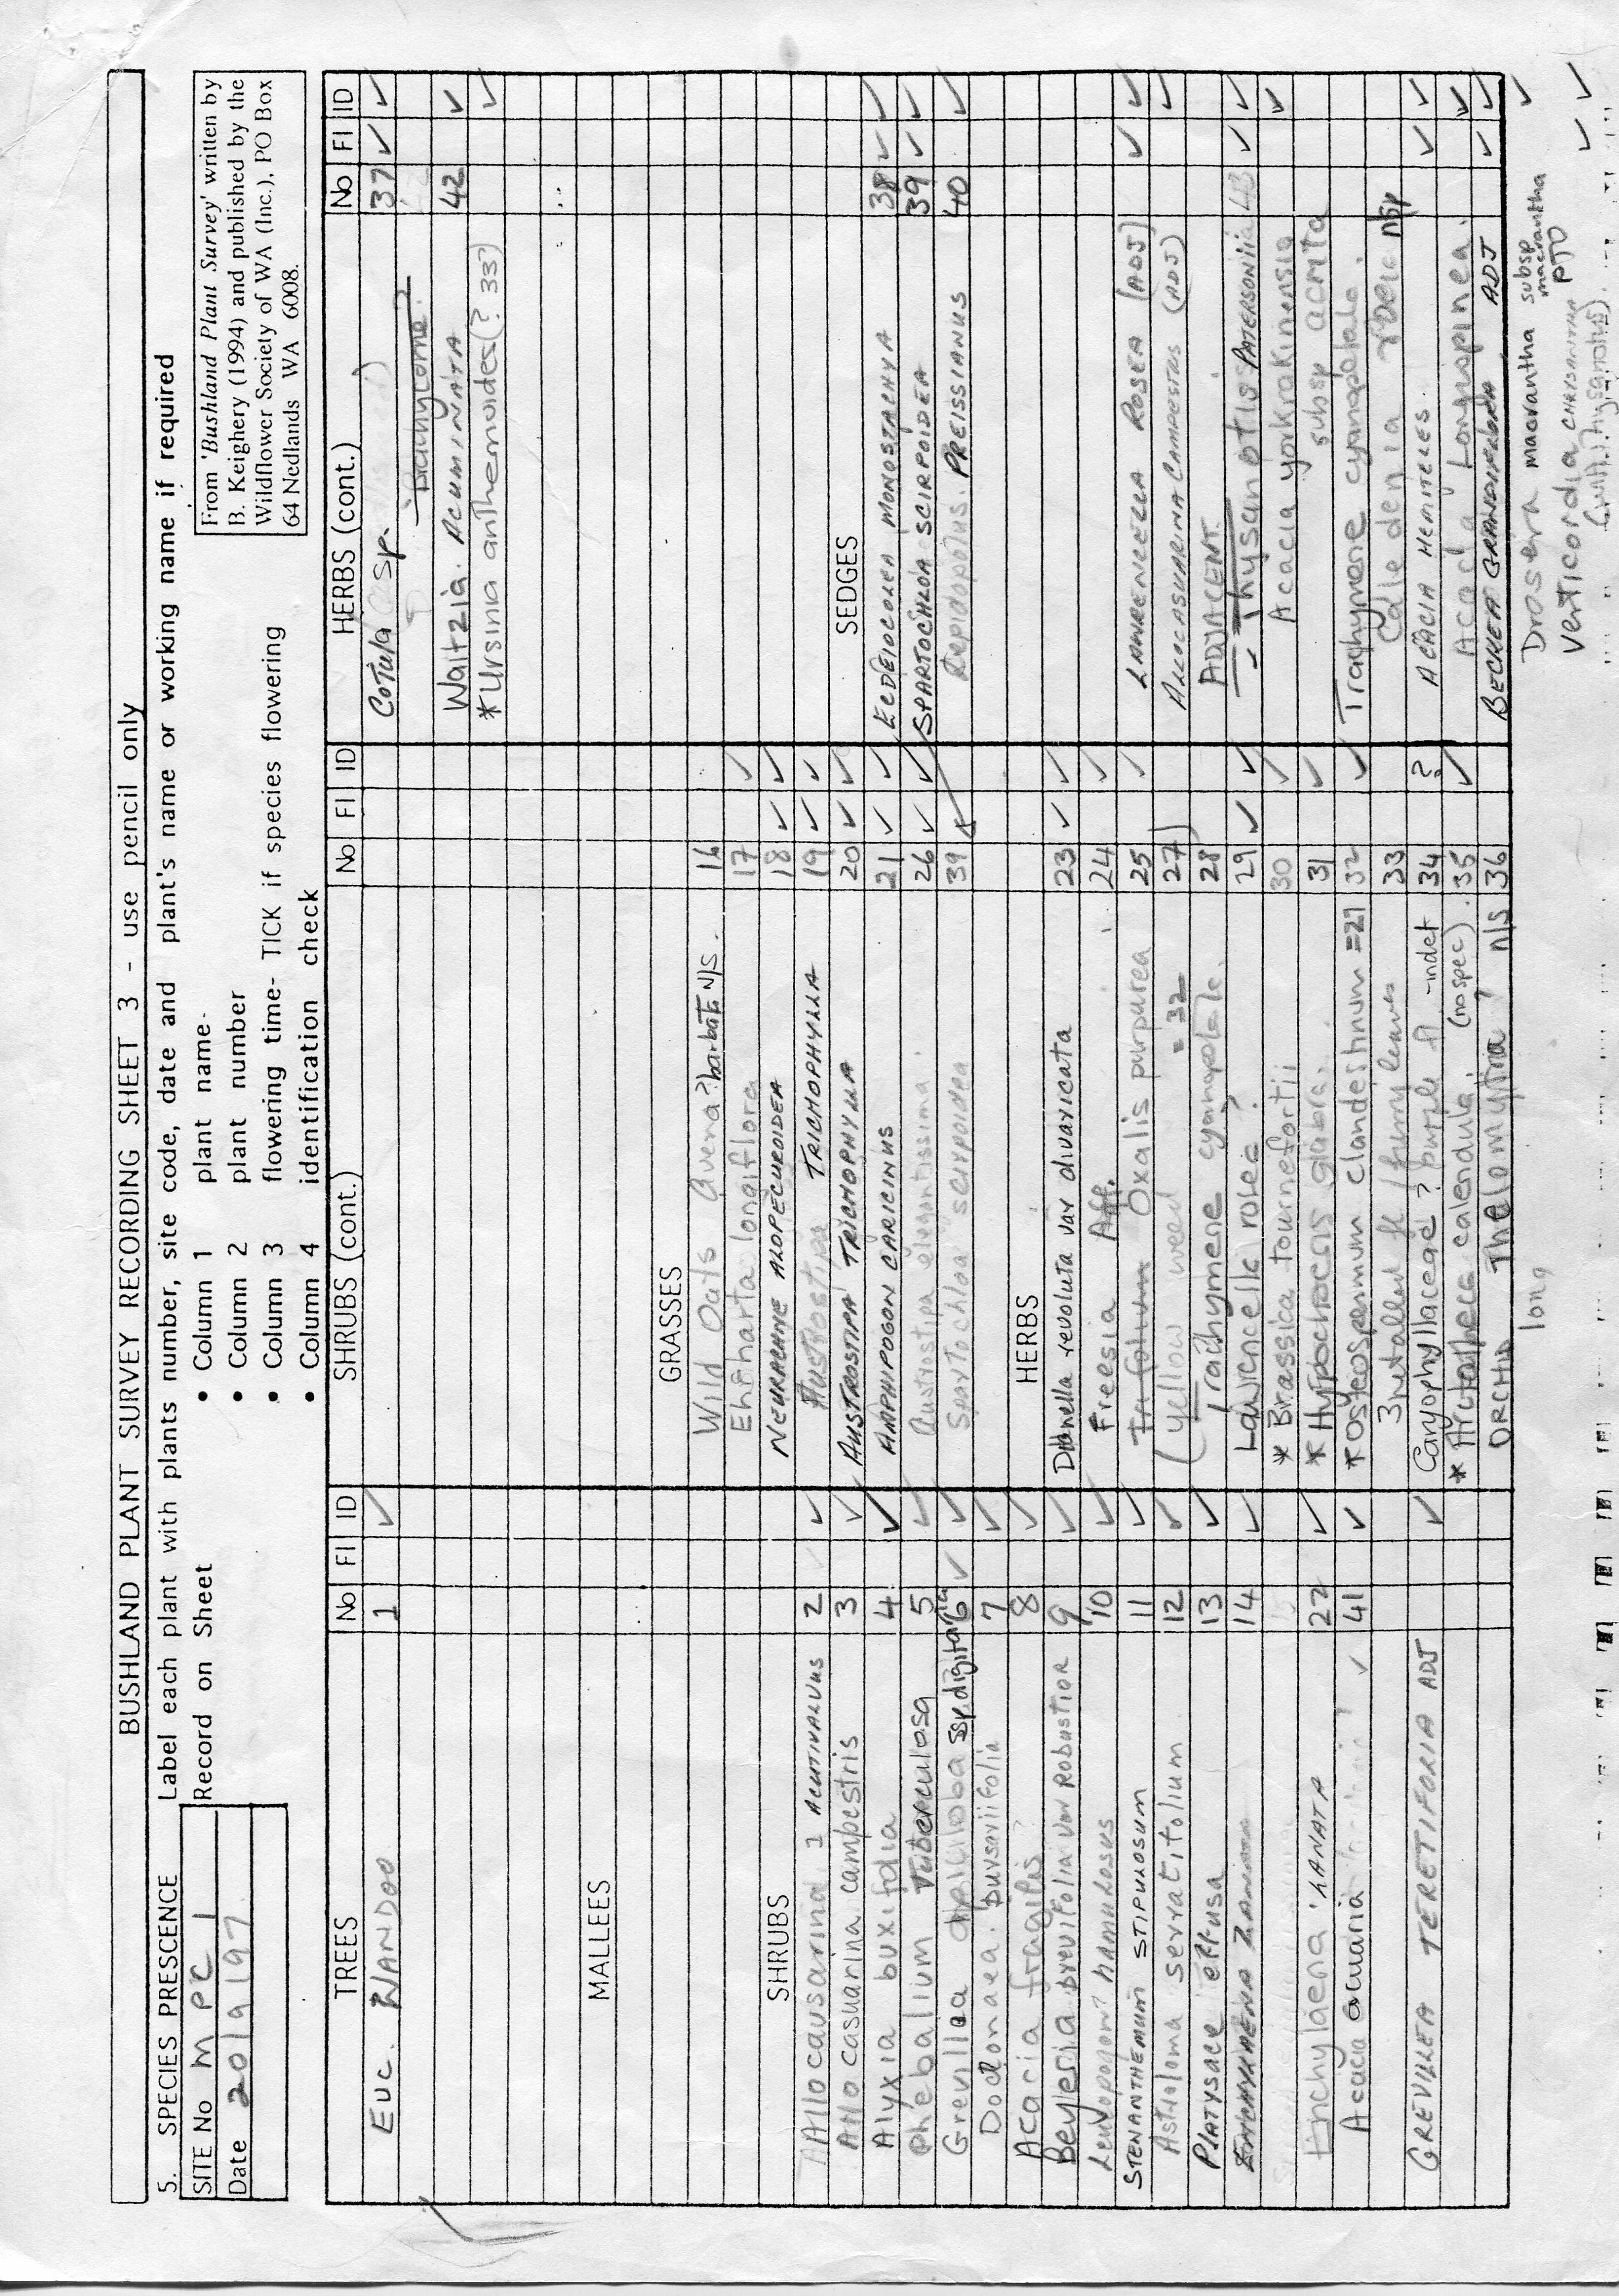 BUSHLAND PLANT SURVEY RECORDING SHEET 3 - use pencil only
5. SPECIES PRESCENCE
Label each plant with plants number, site code, date and plant's name or working name if required
SITE No MPC 1
Date 20/9/97
Record on Sheet
• Column 1 plant name-
• Column 2 plant number
• Column 3 flowering time- TICK if species flowering
• Column 4 identification check
From 'Bushland Plant Survey' written by
B. Keighery (1994) and published by the
Wildflower Society of WA (Inc.), PO Box
64 Nedlands WA 6008.
TREES No Fl ID
EUC. WANDOO 1 ✓
MALLEES
SHRUBS
Allocausarina ACUTIVALVUS 2 ✓
Allocasuarina campestris 3 ✓
Alyxia buxifolia 4 ✓
Phebalium tuberculosa 5 ✓
Grevillea apiciloba ssp. digitata 6 ✓ ✓
Dodonaea. bursariifolia 7 ✓
Acacia fragilis 8 ✓
Beyeria brevifolia var ROBUSTIOR 9 ✓
Leucopogon? hamulosus 10 ✓
STENANTHEMUM STIPULOSUM 11 ✓
Astroloma serratifolium 12 ✓
PLATYSACE effusa 13 ✓
14 ✓
Enchylaena 'LANATA 22 ✓
Acacia acuaria ✓ 41 ✓
GREVILLEA TERETIFOLIA ADJ ✓
SHRUBS (cont.) No Fl ID
GRASSES
Wild Oats Avena ?barbata N/S. 16
Ehrharta longiflora 17 ✓
NEURACHNE ALOPECUROIDEA 18 ✓ ✓
Austrostipa TRICHOPHYLLA 19 ✓ ✓
AUSTROSTIPA TRICHOPHYLLA 20 ✓ ✓
AMPHIPOGON CARICINUS 21 ✓ ✓
Austrostipa elegantissima. 26 ✓ ✓
Spartochloa scirpoidea 39
HERBS
Dianella revoluta var divaricata 23 ✓ ✓
Freesia Aff. 24 ✓
Oxalis purpurea 25 ✓
(yellow weed = 32 27)
Trachymene cyanopetala. 28
Lawrencella rosea 29 ✓ ✓
* Brassica tournefortii 30 ✓
* Hypochoeris glabra. 31 ✓
* Osteospermum clandestinum =27 32 ✓
3 petalled fl / furry leaves 33
Caryophyllaceae? purple fl -indet 34 ?
* Arctotheca calendula. (no spec). 35 ✓
ORCHID Thelomytra, n/s 36
long
HERBS (cont.) No Fl ID
Cotula sp. 37 ✓ ✓
Waitzia. ACUMINATA 42 ✓
* Ursinia anthemoides (? 33) ✓
SEDGES
ECDEIOCOLEA MONOSTACHYA 38 ✓ ✓
SPARTOCHLOA SCIRPOIDEA 39 ✓ ✓
Lepidopolus. PREISSIANUS 40 ✓
LAWRENCELLA ROSEA (ADJ) ✓ ✓
ALLOCASUARINA CAMPESTUS (ADJ) ✓
ADJACENT.
- Thysanotis PATERSONII 43 ✓ ✓
Acacia yorkrakinensia ✓
subsp acrita
Trachymene cyanopetala.
Caledenia
ACACIA HEMITELES. ✓ ✓
Acacia Longispinea. ✓
BECKEA GRANDIFLORA ADJ ✓ ✓
Drosera macrantha subsp macrantha ✓
Verticordia CHRYSANTHA PTO ✓ ✓